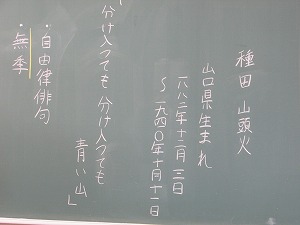 種田 山頭火
山口県生まれ
一八八二年十二月三日
〜一九四〇年十月十一日
「分け入つても分け入つても
青い山」
・自由律俳句
・無季